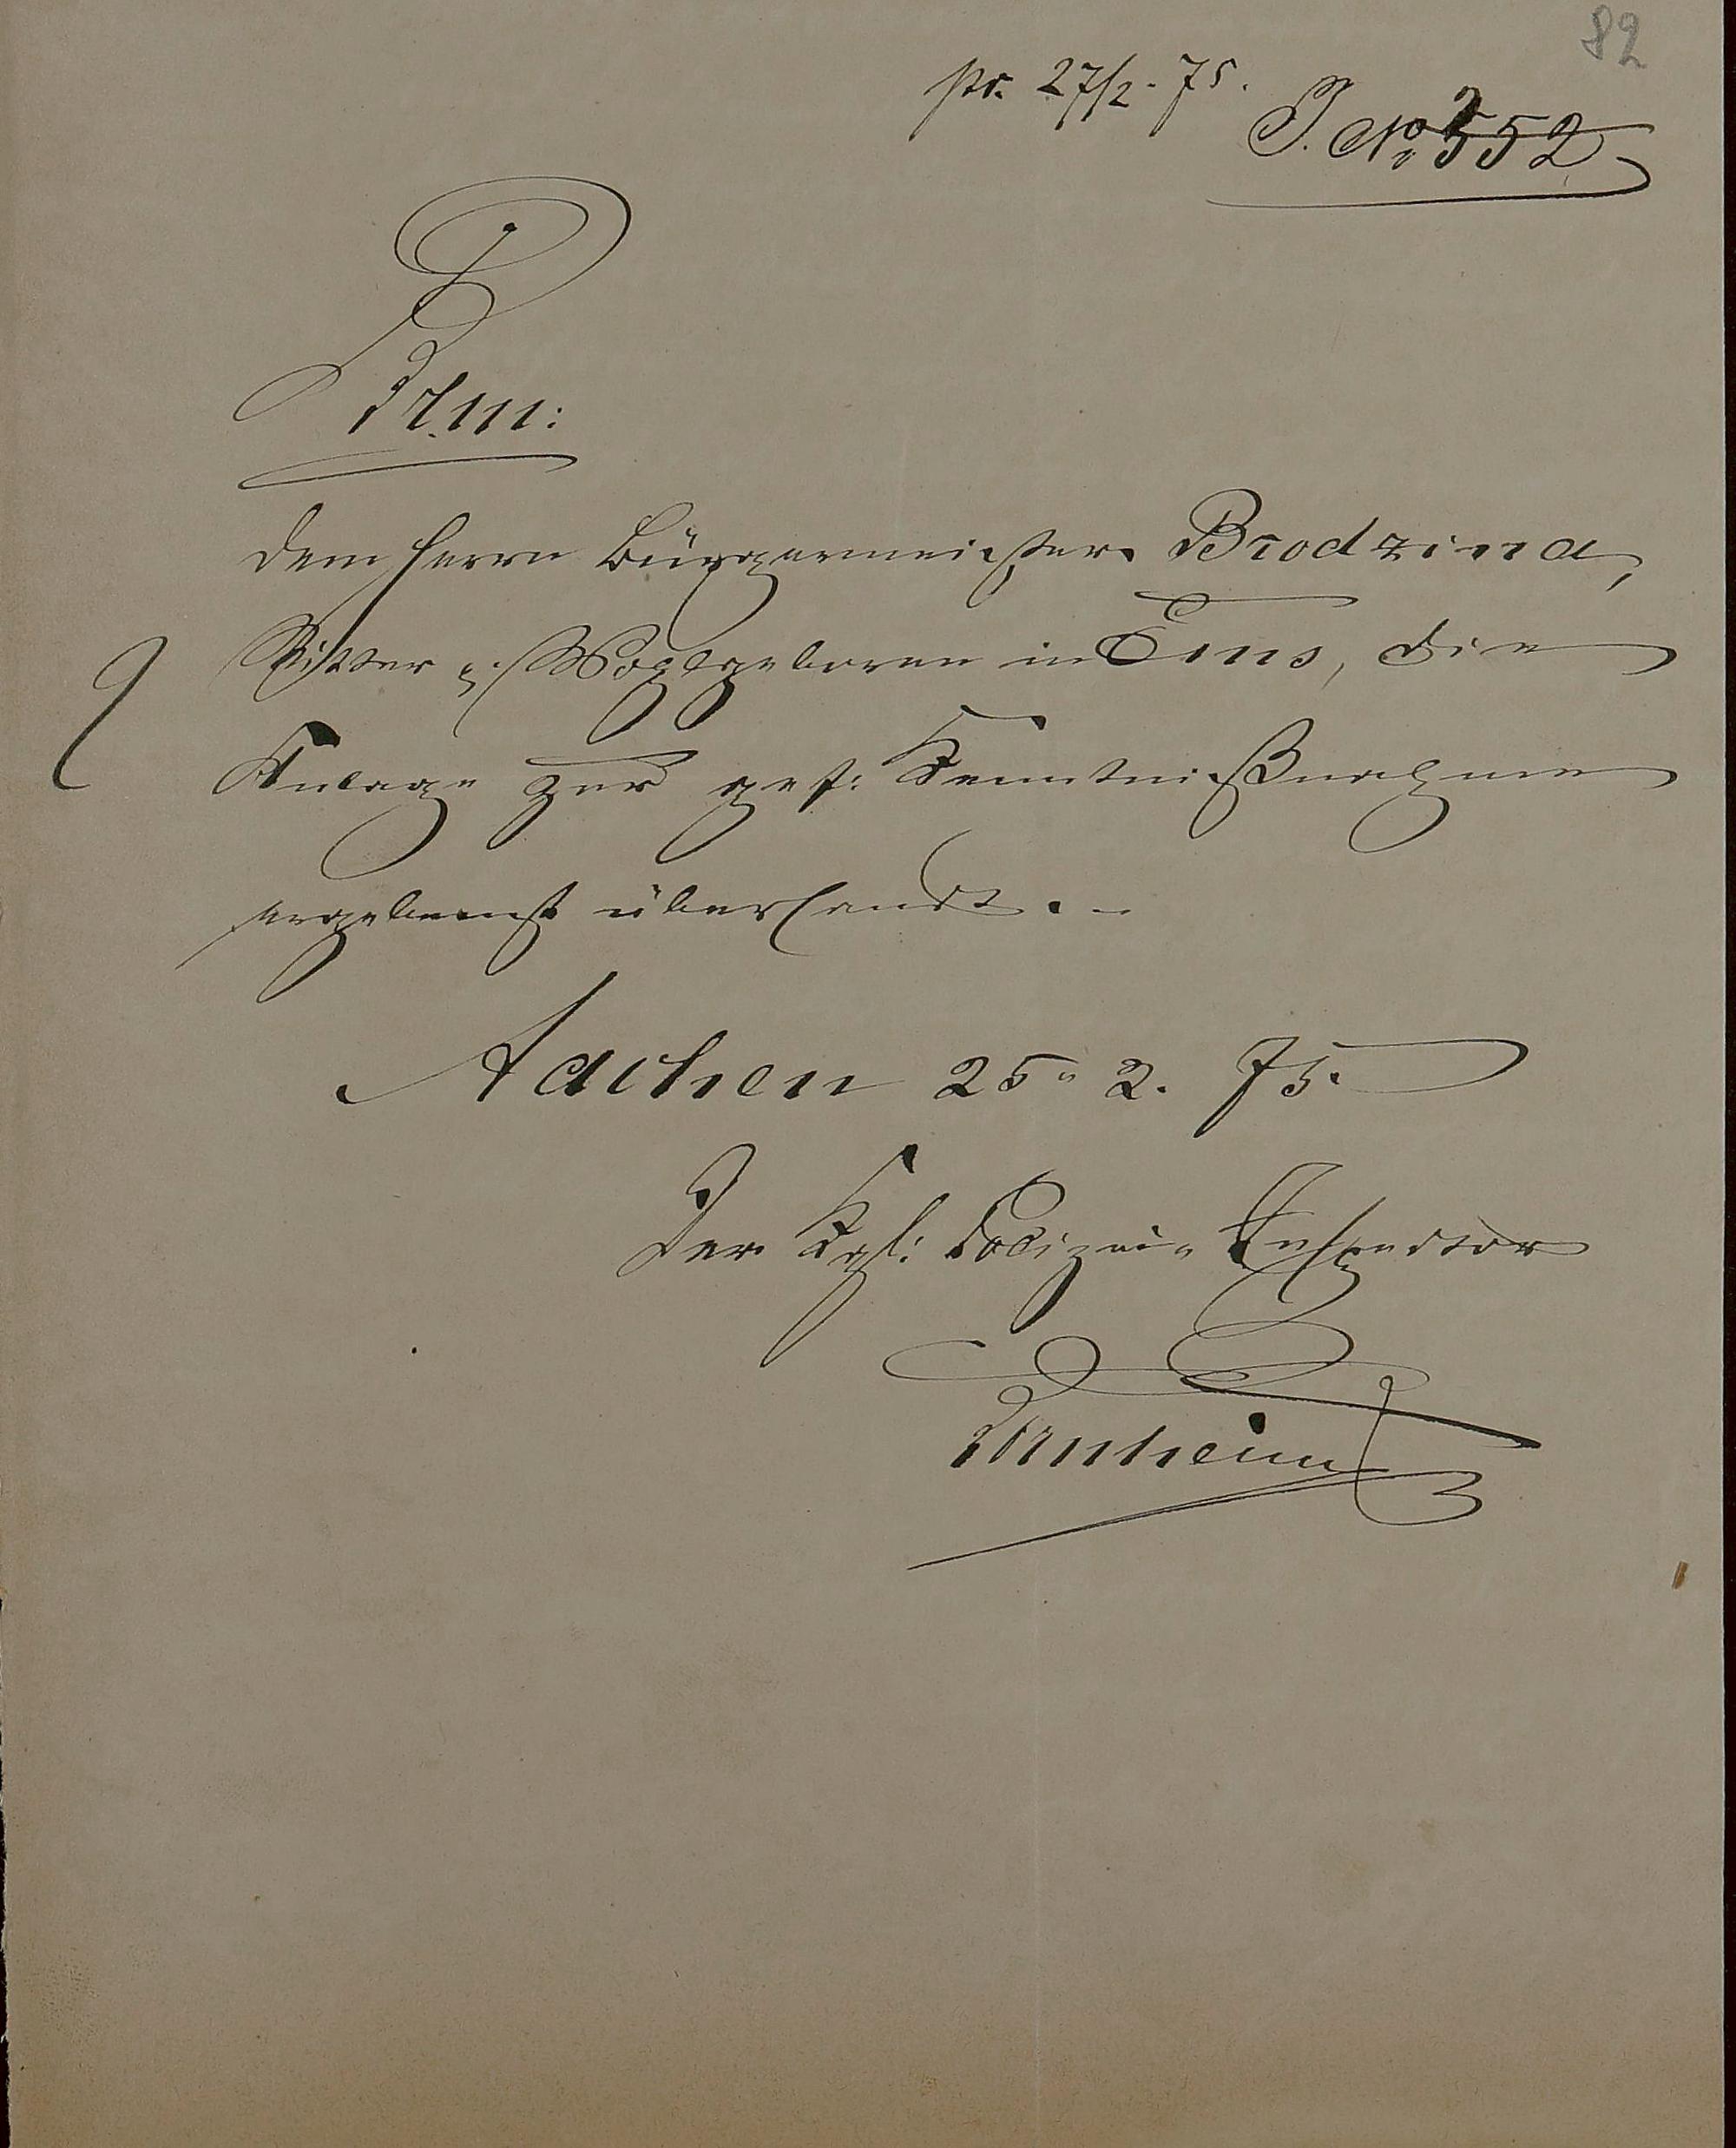 82
pr. 27/2. 75.
J. No 552
B. m:
dem Herrn Bürgermeister Brodzina,
Ritter p. Wohlgeboren in Ems, die
Anlage zur gef: Kenntnißnahme
ergebenst übersandt. –
Aachen 25. 2. 75.
Der Kgl: Polizei-Inspector
Dornheim